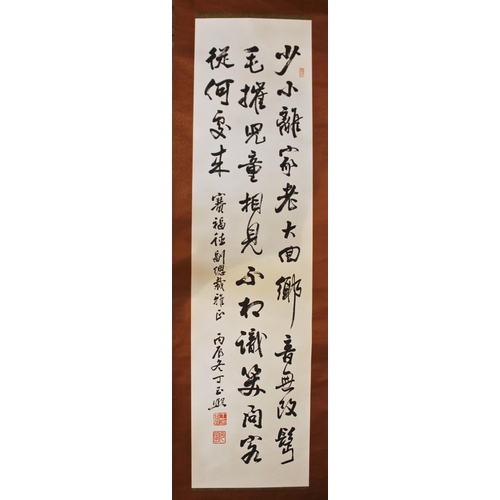 少小離家老大回鄉音無改鬢
毛摧兒童相見不相識笑問客
從何處來
賽福徒副總裁雅正
丙辰冬丁正熙